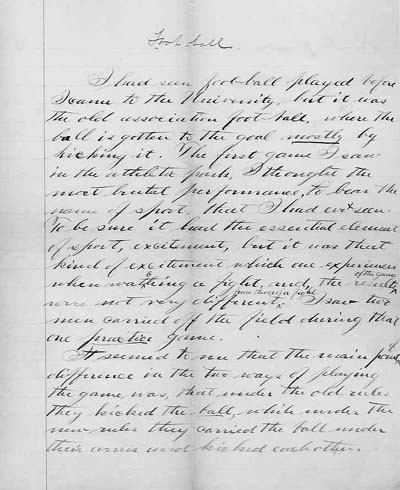 Foot ball.
I had seen foot-ball played before
I came to the University, but it was
the old association foot ball, where the
ball is gotten to the goal mostly by
kicking it. The first game I saw
in the athletic park, I thought the
most brutal performance, to bear the
name of sport, that I had ever seen.
To be sure it had the essential element
of sport, excitement, but it was that
kind of excitement which one experiences
of the game
when watching a fight, and, the results
from those of a fight
were not very different. I saw two
men carried off the field during that
one practice game.
It seemed to me that the main point of
difference in the two ways of playing
the game, was, that under the old rules
they kicked the ball, while under the
new rules they carried the ball under
their arms and kicked each other.